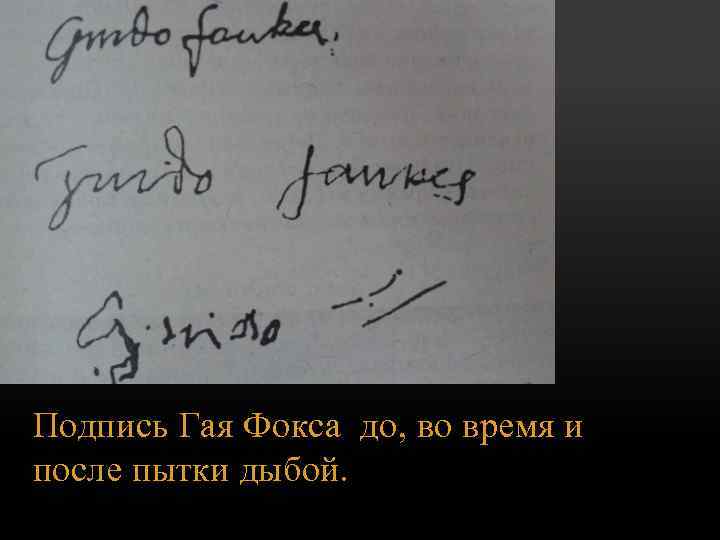 Guido faukes.
Guido faukes
Guido
Подпись Гая Фокса до, во время и
после пытки дыбой.